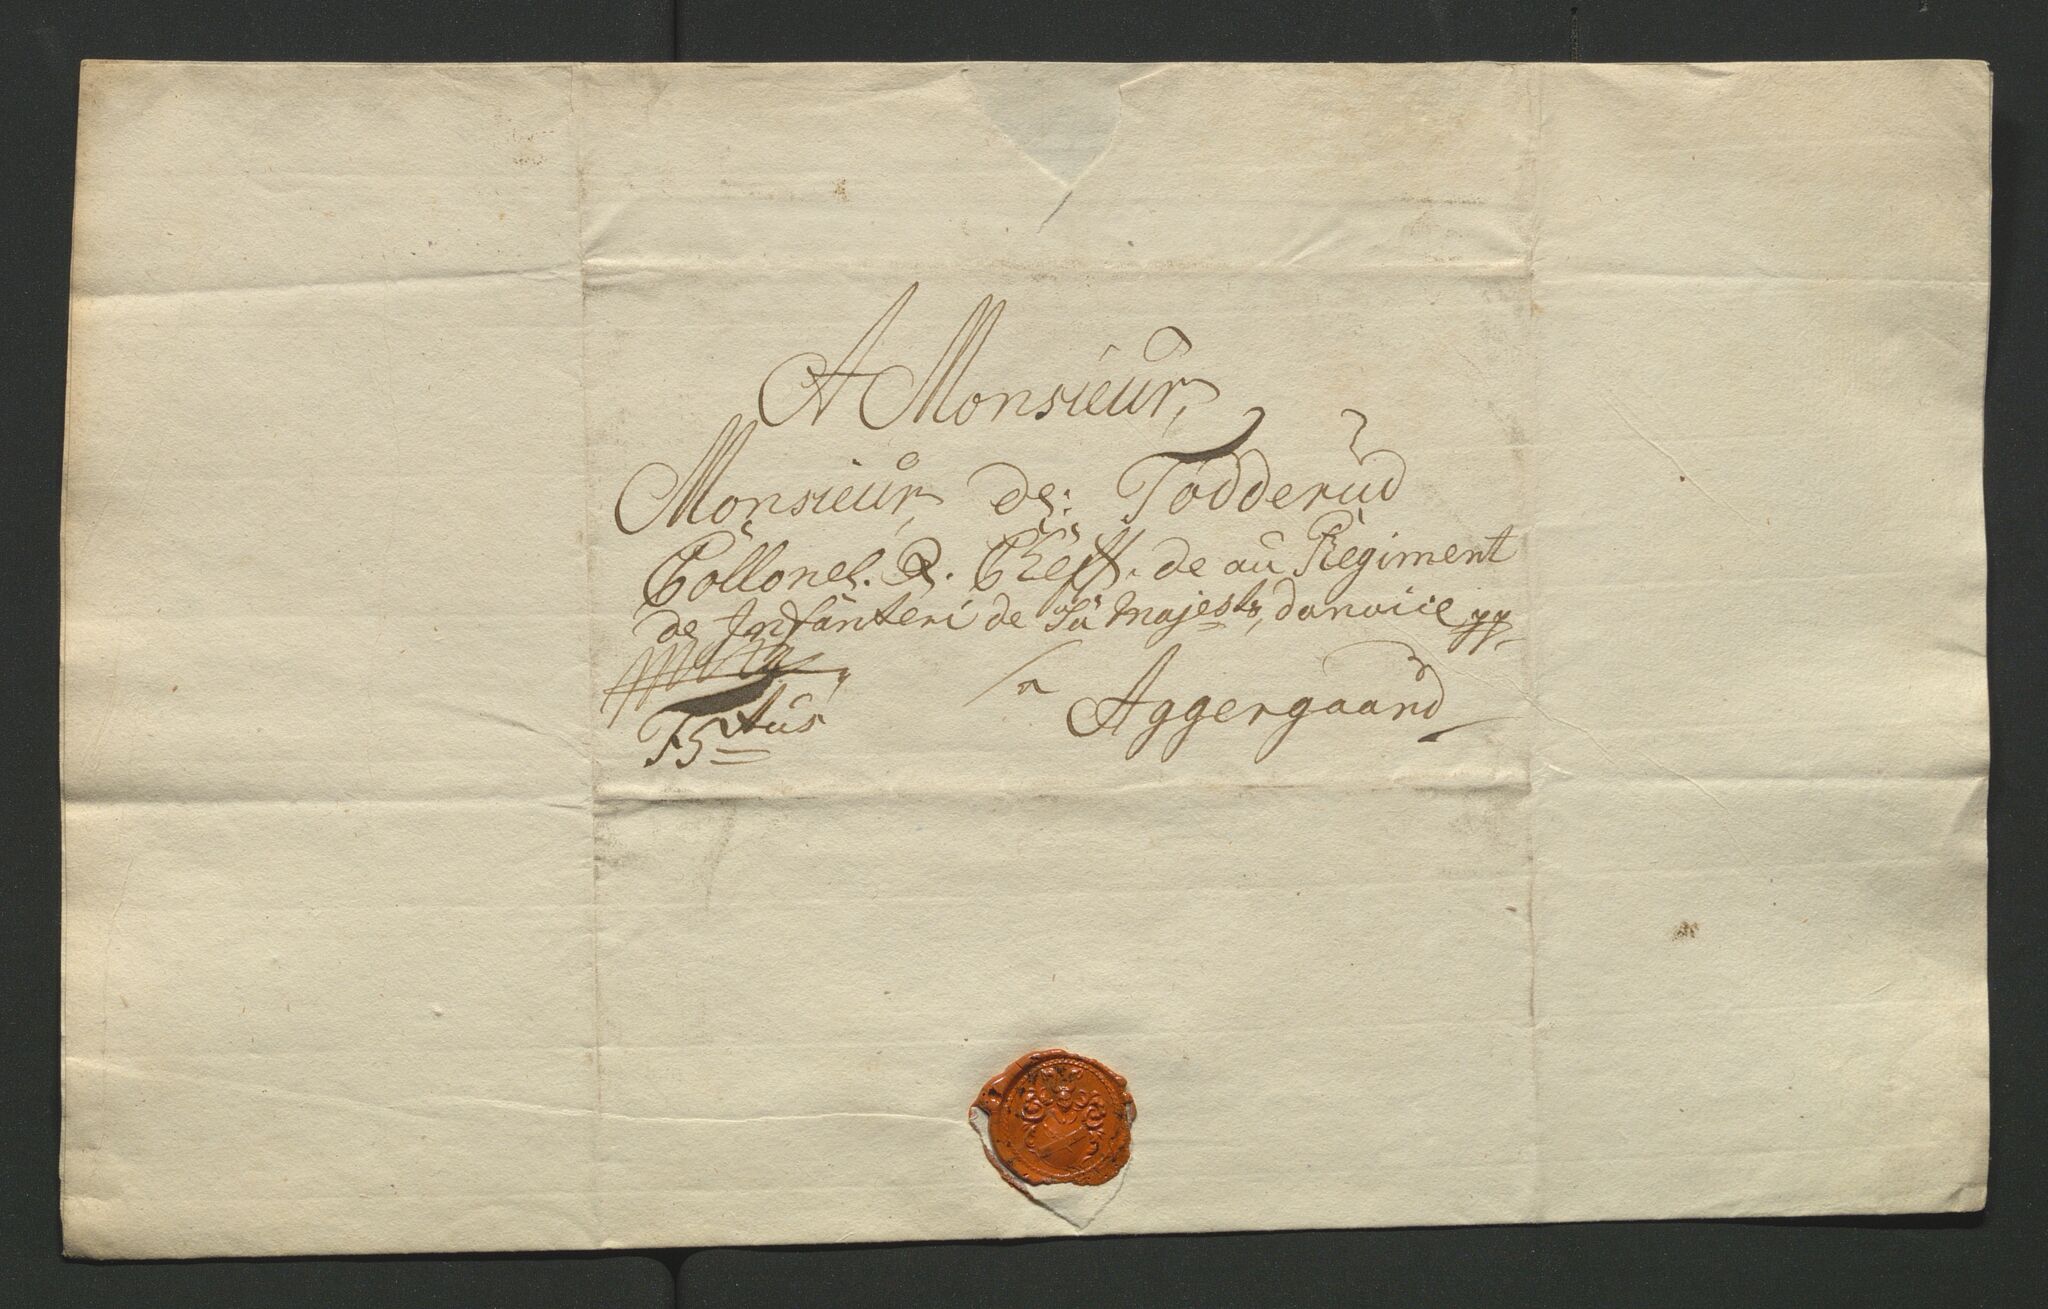 A Monsieur,
Monsieur, de: Todderud
Collonel. & Cheff. de au Regiment
de Infanteri de Sa Majeste, danoice pp
a Aggergaard